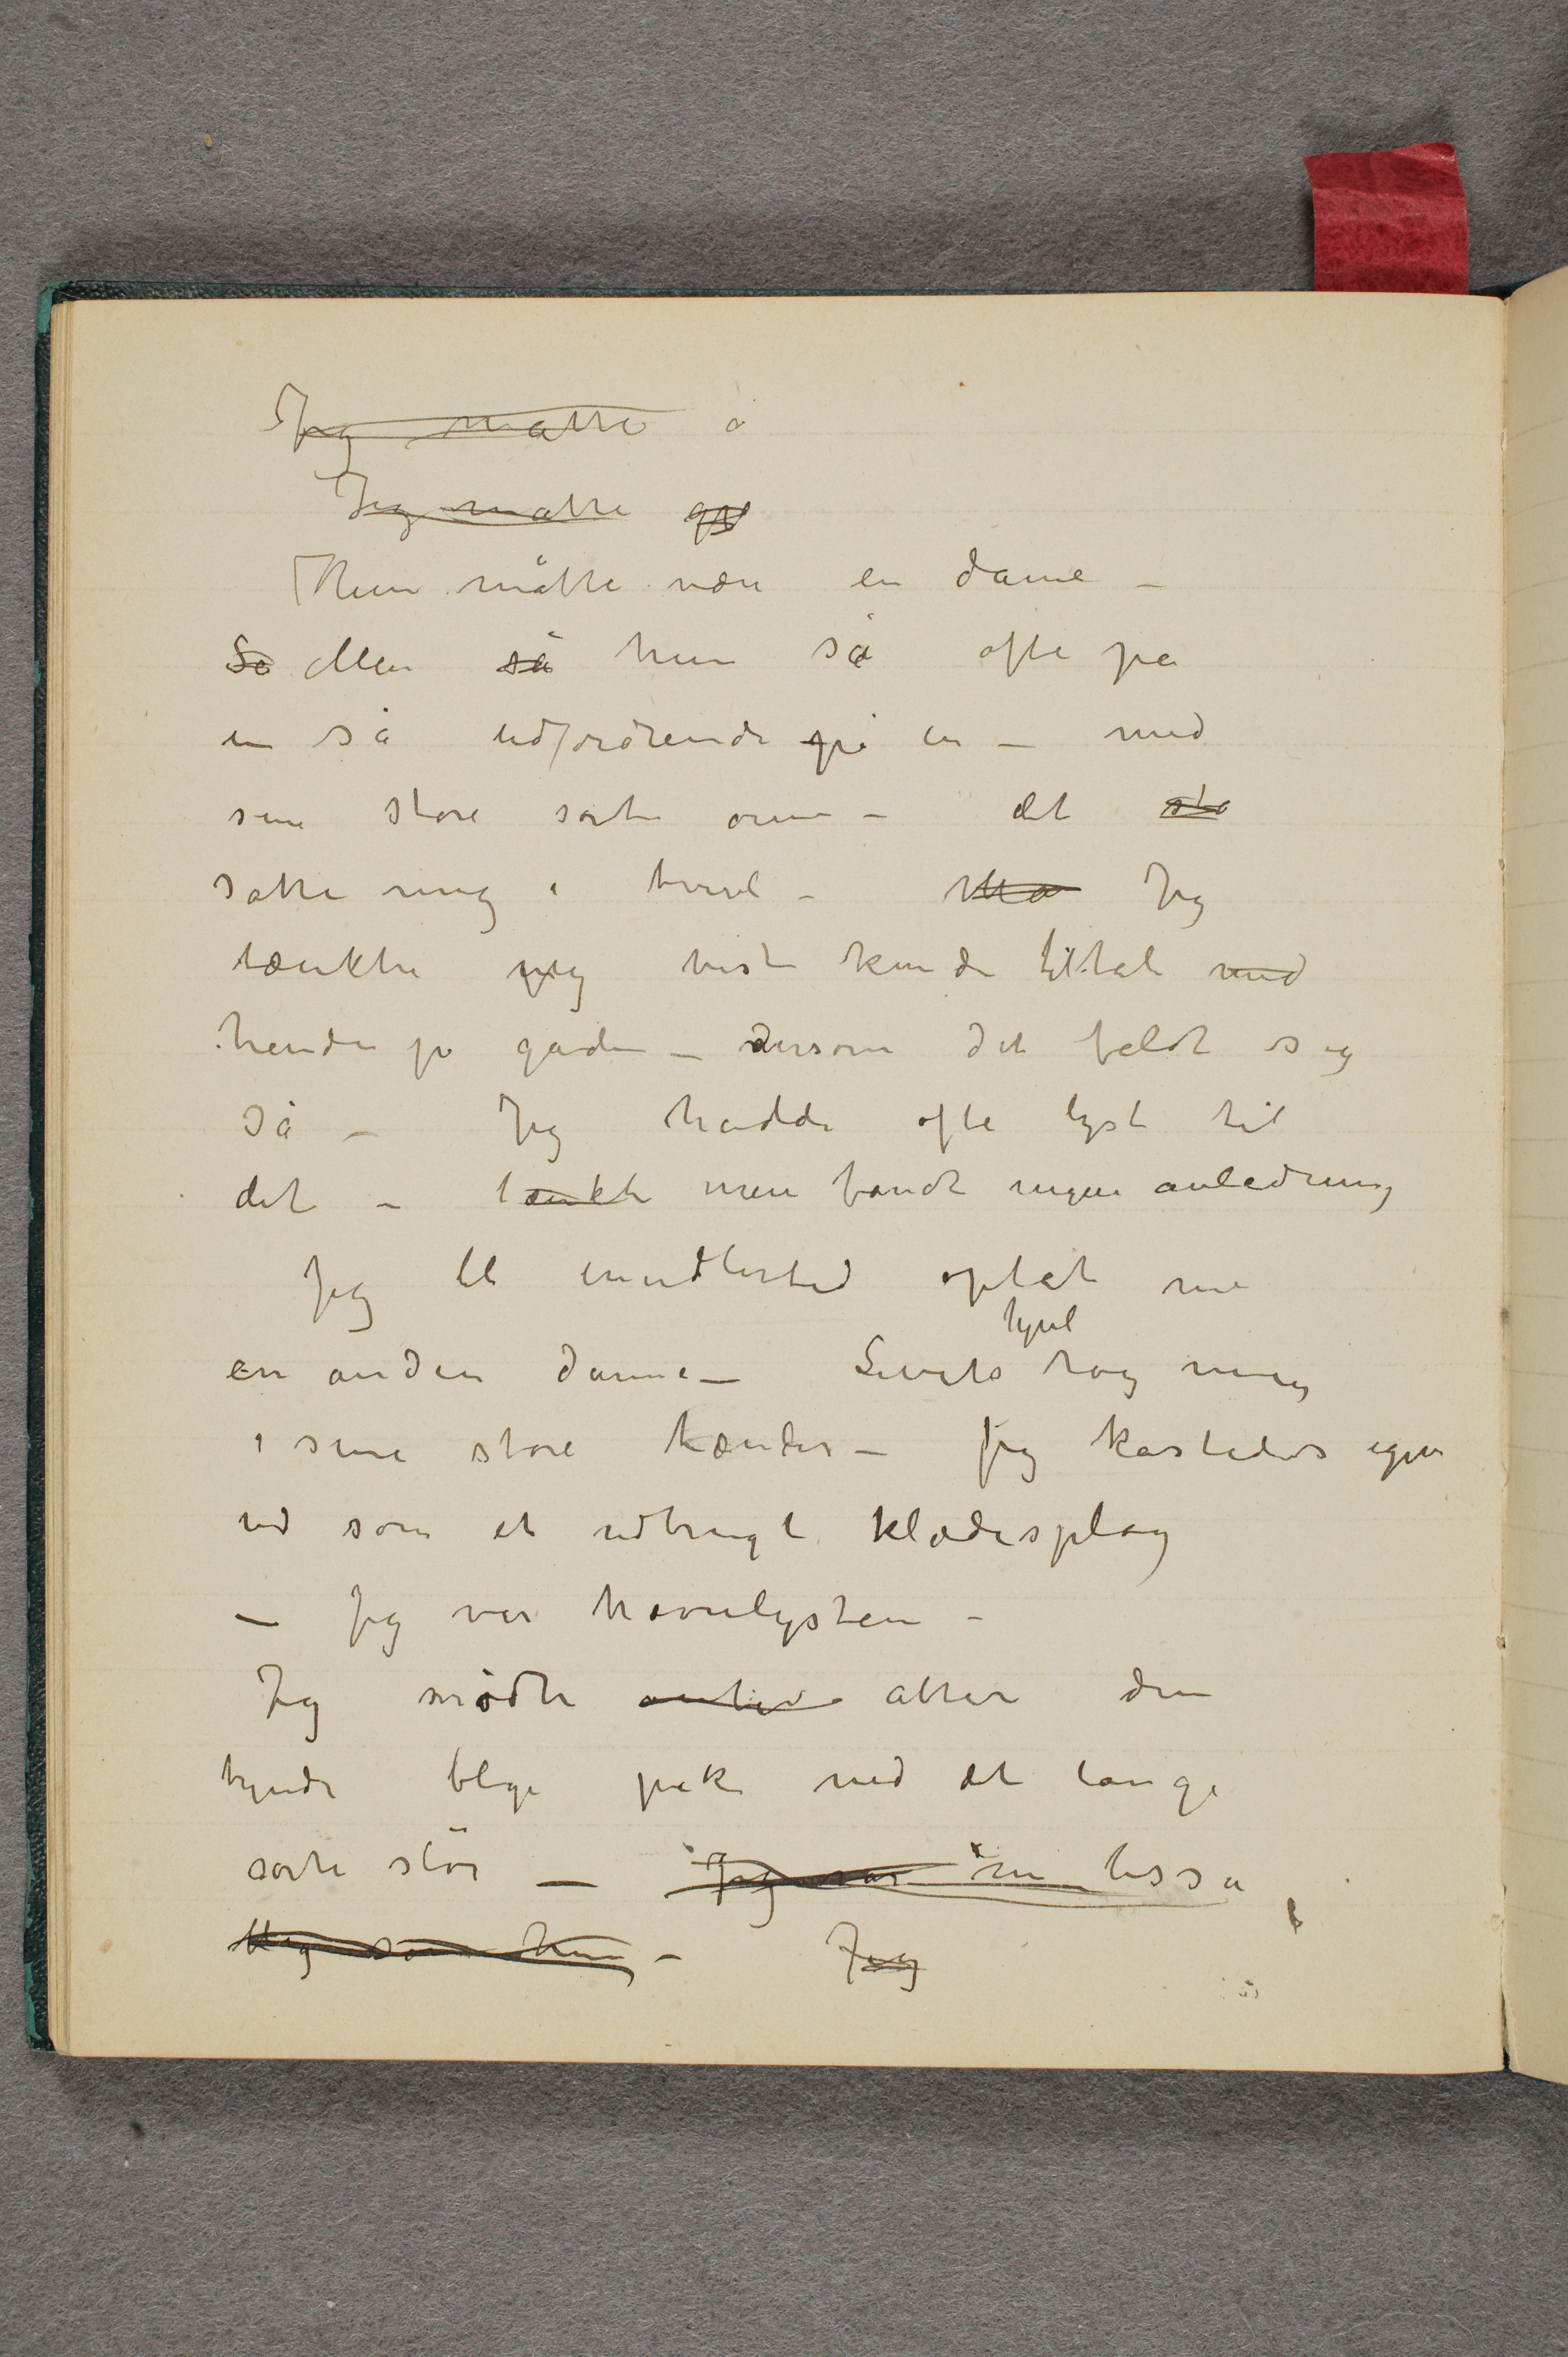 Jeg måtte å
Jeg måtte gå
Hun måtte være en dame –
Så Men så hun så ofte på
en så udfordrende på en – med
sine store sorte øine – det sto
satte mig i tvivl – Må Jeg
tænkte jeg vist kunde tiltale med
hende på gaden – dersom det faldt sig
så – Jeg hadde ofte lyst til
det – tænkte men fandt ingen anledning
Jeg ble imidlertid optat me
en anden dame – Livets hjul tog mig
i sine store tænder – Jeg kastedes igjen
ud som et udbrugt klædesplag
– Jeg var hævnlysten –
Jeg mødte atter den
tynde blege pike med det lange
sorte slør – Jeg var
som hun – Jeg